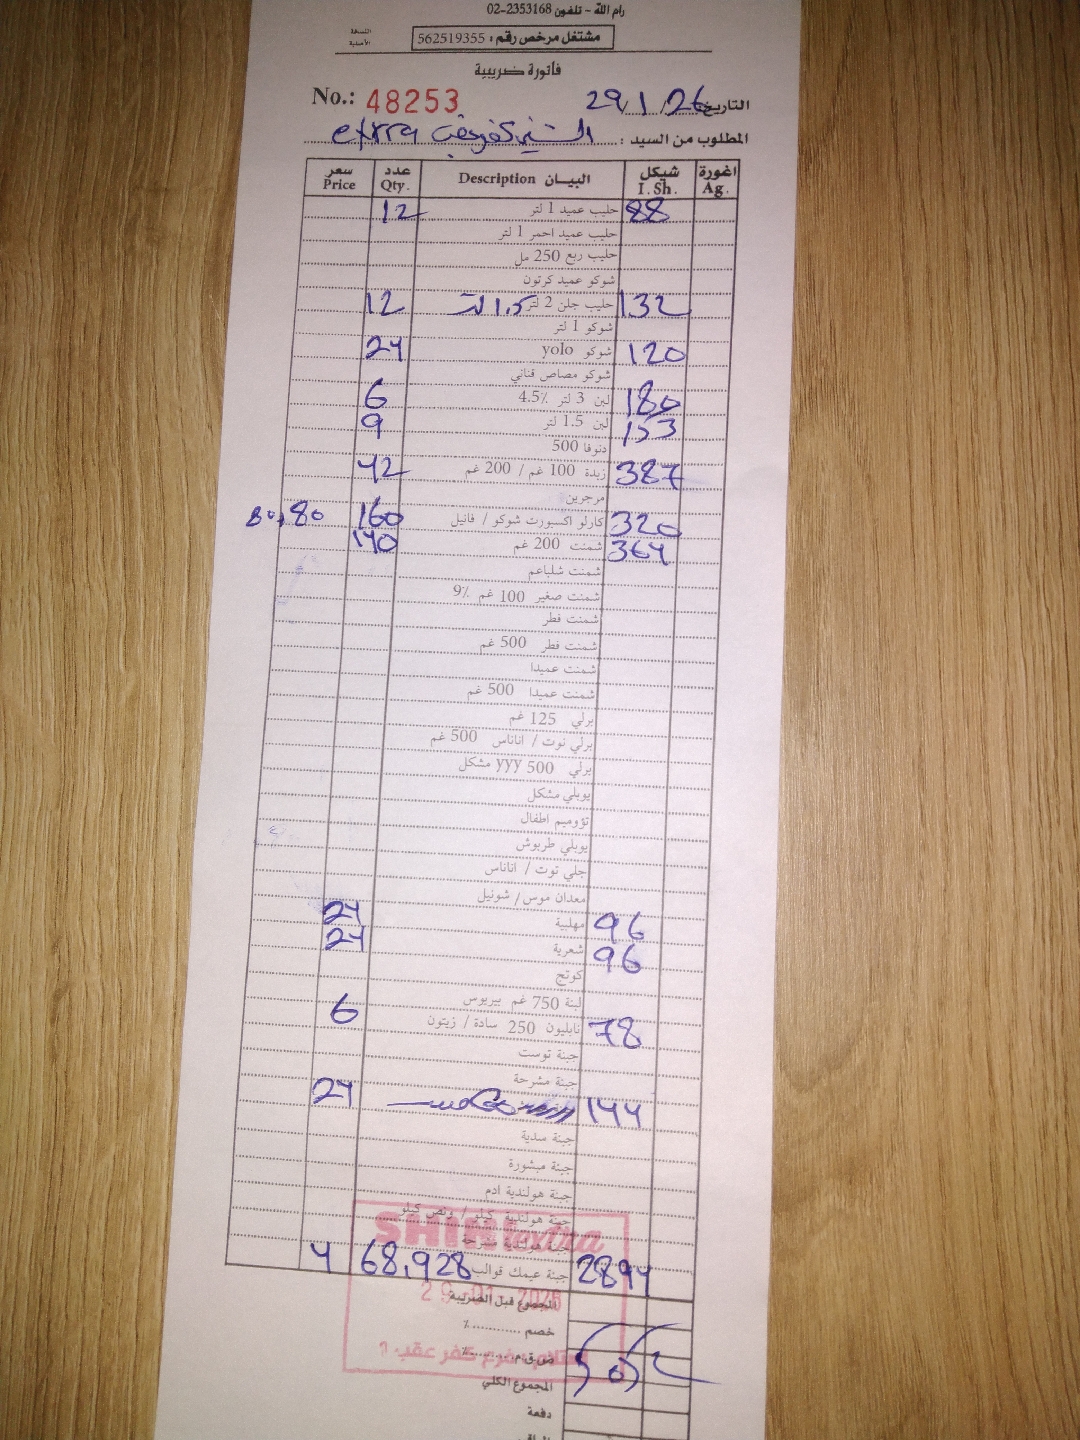 رام الله - تلفون 2353168-02
مشتغل مرخص رقم : 562519355
النسخة الأصلية
فاتورة ضريبية
No.: 48253 التاريخ 29/1/26
المطلوب من السيد : extra
اغورة Ag. شيكل I. Sh. البيـان Description عدد Qty. سعر Price
88 حليب عميد 1 لتر 12
حليب عميد احمر 1 لتر
حليب ربع 250 مل
شوكو عميد كرتون
132 حليب جلن 2 لتر 1.5 لتر 12
شوكو 1 لتر
120 شوكو yolo 24
شوكو مصاص قناني
180 لبن 3 لتر 4.5٪ 6
153 لبن 1.5 لتر 9
دنوفا 500
387 زبدة 100 غم / 200 غم 42
مرجرين
320 كارلو اكسبورت شوكو / فانيل 160 80,80
364 شمنت 200 غم 140
شمنت شلباعم
شمنت صغير 100 غم 9٪
شمنت فطر
شمنت فطر 500 غم
شمنت عميدا
شمنت عميدا 500 غم
برلي 125 غم
برلي توت / اناناس 500 غم
برلي 500 yyy مشكل
يوبلي مشكل
تؤوميم اطفال
يوبلي طربوش
جلي توت / اناناس
معدان موس / شونيل
96 مهلبية 24
96 شعرية 24
كوتج
لبنة 750 غم بيريوس
78 نابليون 250 سادة / زيتون 6
جبنة توست
جبنة مشرحة
144 24
جبنة سدية
جبنة مبشورة
جبنة هولندية ادم
جبنة هولندية كيلو / ونص كيلو
جبنة هولندية مشرحة
2894 جبنة عيمك قوالب 68,928 4
المجموع قبل الضريبة
29-01-2026
خصم ...........٪
المجموع الكلي
فرع كفر عقب 1
دفعة